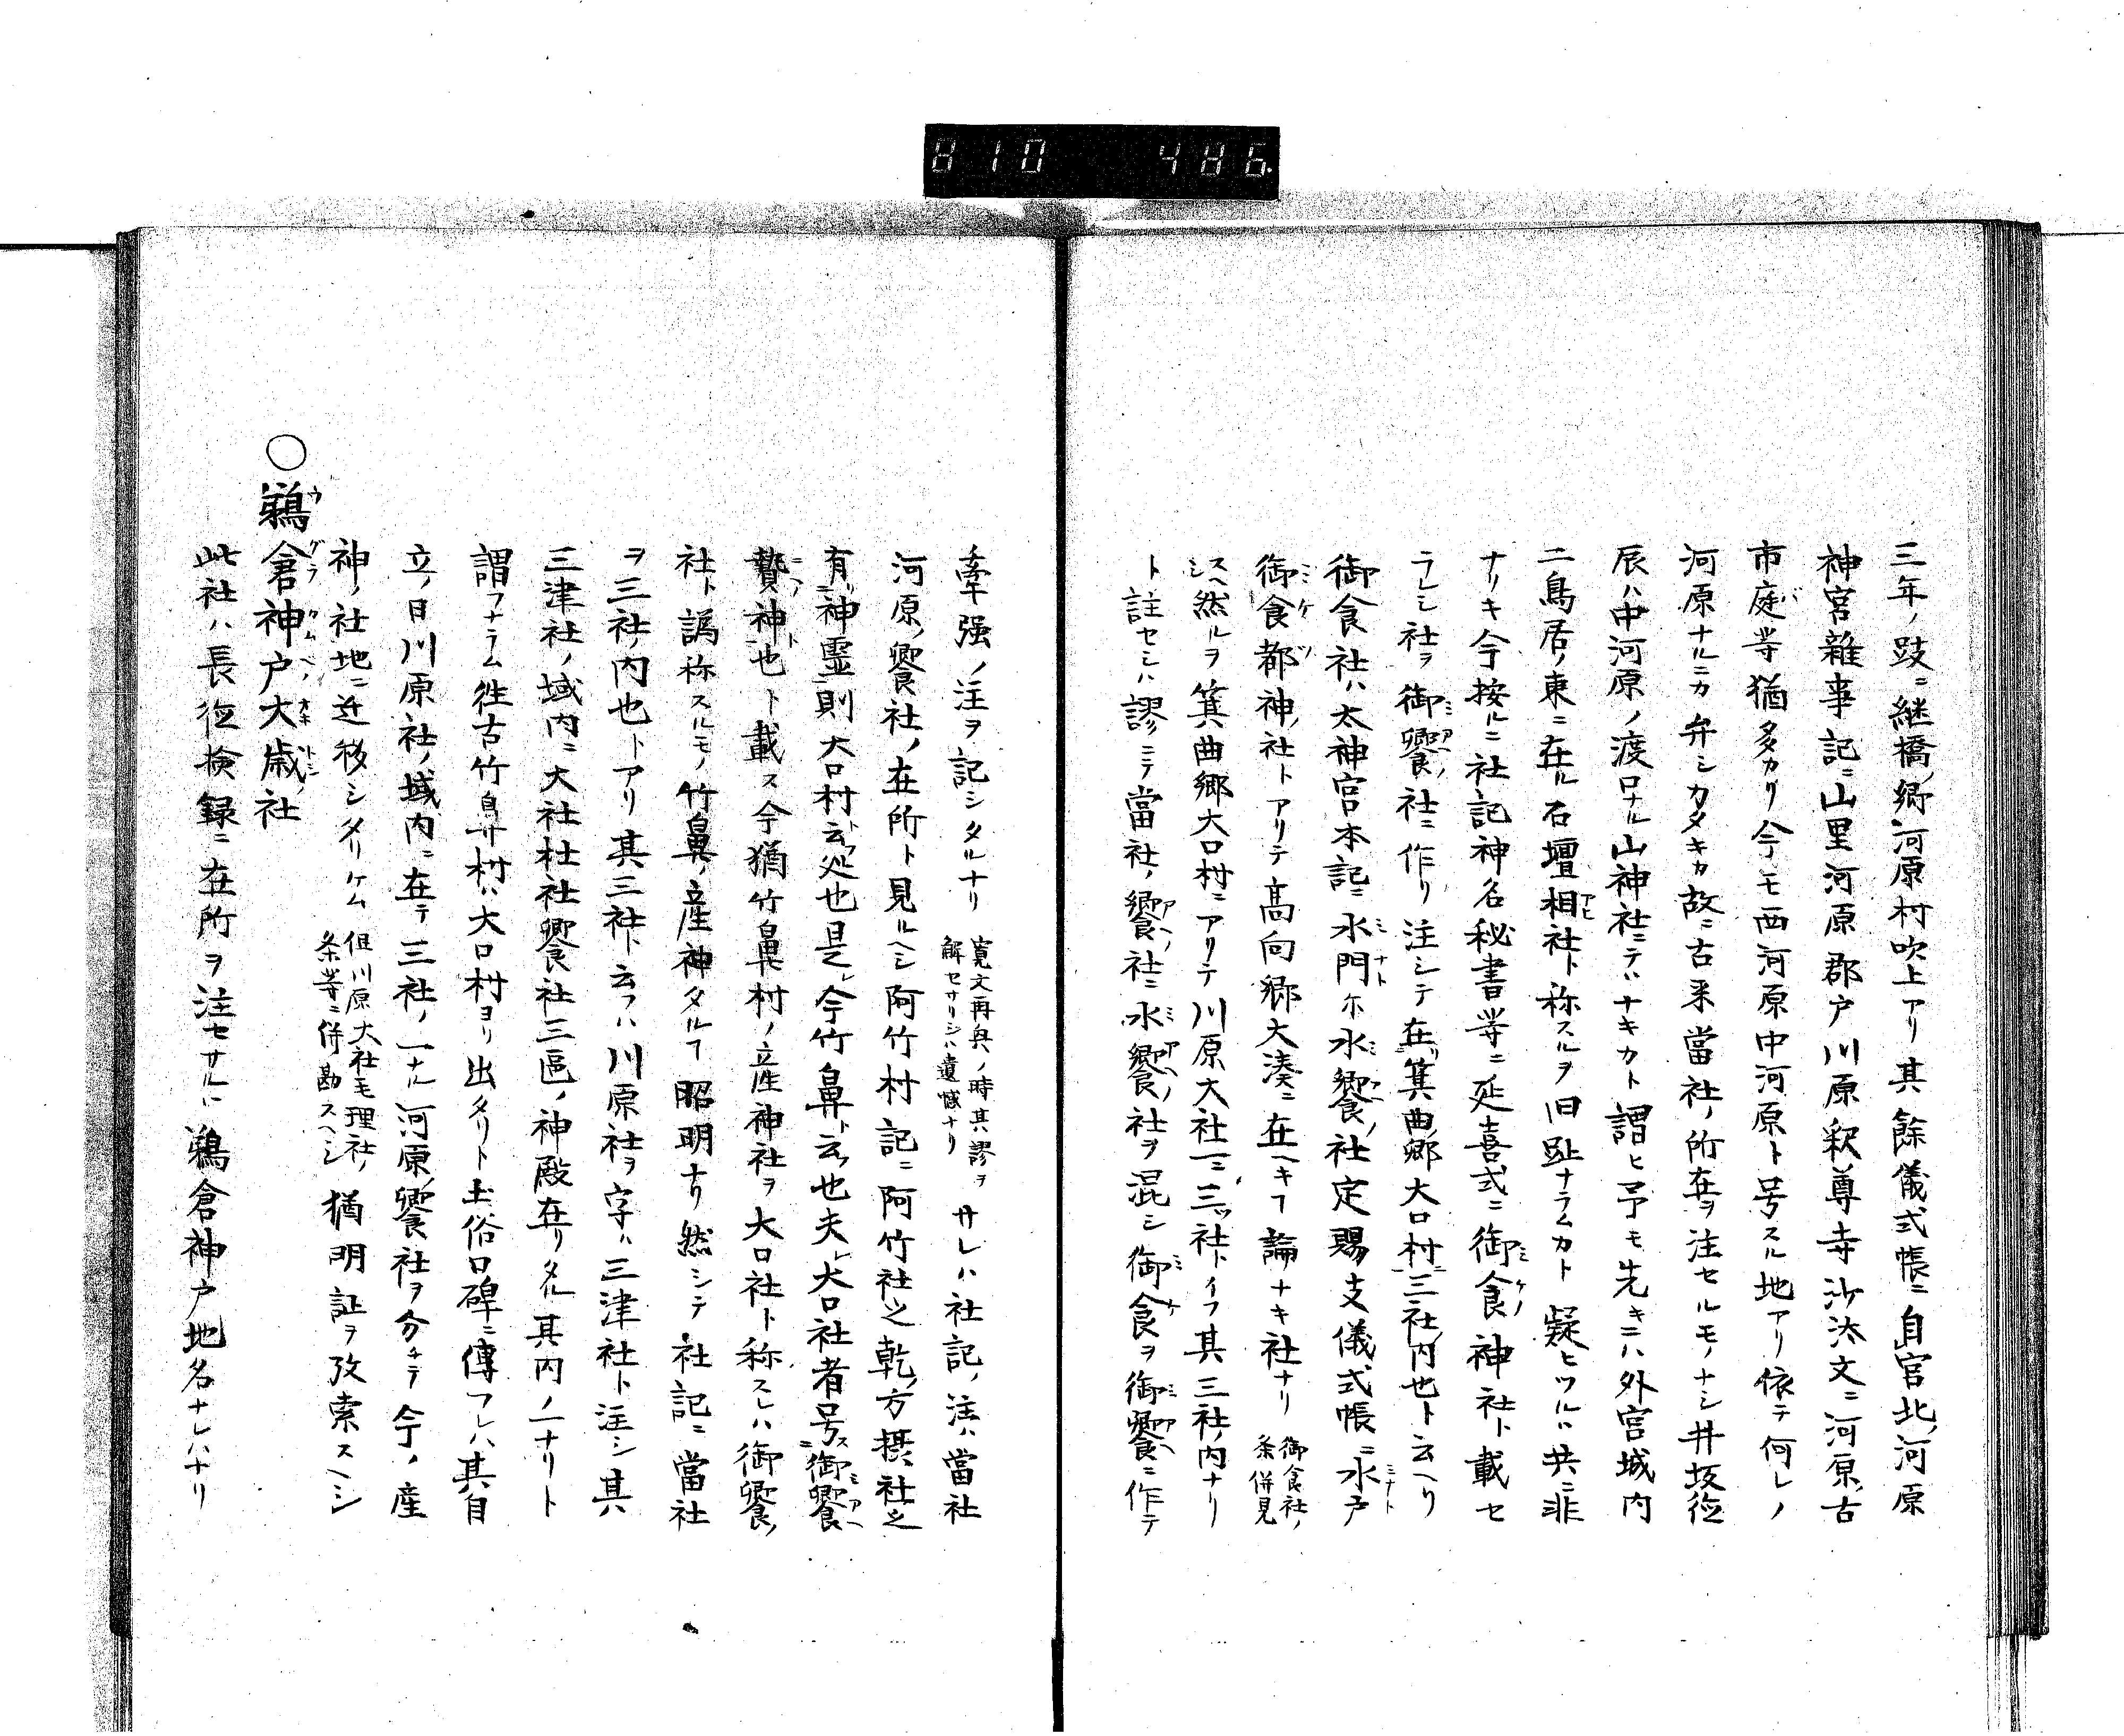 810 486.
三年ノ跋ニ継橋郷河原村吹上アリ其餘儀式帳ニ自宮北ノ河原
神宮雜事記ニ山里河原郡戸川原釈尊寺沙汰文ニ河原古
市庭等猶多カリ今モ西河原中河原ト号スル地アリ依テ何レノ
河原ナルニカ弁シカタキカ故ニ古来當社ノ所在ヲ注セルモノナシ井坂徳
辰ハ中河原ノ渡口ナル山神社ニテハナキカト謂ヒ予モ先キニハ外宮城内
二鳥居ノ東ニ在ル石壇相社ト称スルヲ旧趾ナラムカト疑ヒツルハ共ニ非
ナリキ今按ルニ社記神名秘書等ニ延喜式ニ御食神社ト載セ
ラレシ社ヲ御饗社ニ作リ注シテ在箕曲郷大口村三社内也ト云ヘリ
御食社ハ太神宮本記ニ水門ホ水饗社定賜支儀式帳ニ水戸
御食都神社トアリテ高向郷大湊ニ在ヘキヿ論ナキ社ナリ 御食社ノ条併見
スヘシ然ルヲ箕曲郷大口村ニアリテ川原大社一ニ三ツ社トイフ其三社ノ内ナリ
ト註セシハ謬ニテ當社ノ饗社ニ水饗社ヲ混シ御食ヲ御饗ニ作テ
牽强ノ注ヲ記シタルナリ 寛文再興ノ時其謬ヲ解セサリシハ遺憾ナリ サレハ社記ノ注ハ當社
河原ノ饗社ノ在所ト見ルヘシ阿竹村記ニ阿竹社之乾ノ方摂社之
有神霊則大口村云処也是今竹鼻云也夫大口社者号御饗
贄神也ト載ス今猶竹鼻村ノ産神社ヲ大口社ト称スレハ御饗
社ト譌称スルモノ竹鼻ノ産神タルヿ昭明ナリ然シテ社記ニ當社
ヲ三社ノ内也トアリ其三社ト云フハ川原社ヲ字ハ三津社ト注シ其
三津社ノ域内ニ大社社社饗食社三區ノ神殿在リタル其内ノ一ナリト
謂フナラム徃古竹鼻村ハ大口村ヨリ出タリト土俗口碑ニ傳フレハ其自
立ノ日川原社ノ域内ニ在テ三社ノ一ナル河原饗社ヲ分チテ今ノ産
神ノ社地ニ近移シタリケム 但川原大社毛理社ノ条等ニ併勘スヘシ 猶明証ヲ攷索スヘシ
〇鵜倉神戸大歳社
此社ハ長徳検録ニ在所ヲ注セサルハ鵜倉神戸地名ナレハナリ